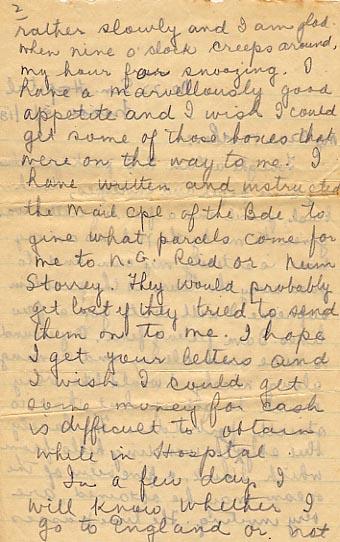 2
rather slowly and I am glad
when nine o'clock creeps around,
my hour for snoozing. I
have a marvellously good
appetite and I wish I could
get some of those boxes that
were on the way to me. I
have written and instructed
the Mail Cpl of the Bde to
give what parcels come for
me to N.G. Reid or
Storrey. They would probably
get lost if they tried to send
them on to me. I hope
I get your letters and
I wish I could get
some money for cash
is difficult to obtain
while in Hospital.
In a few days I
will know whether I
go to England or not